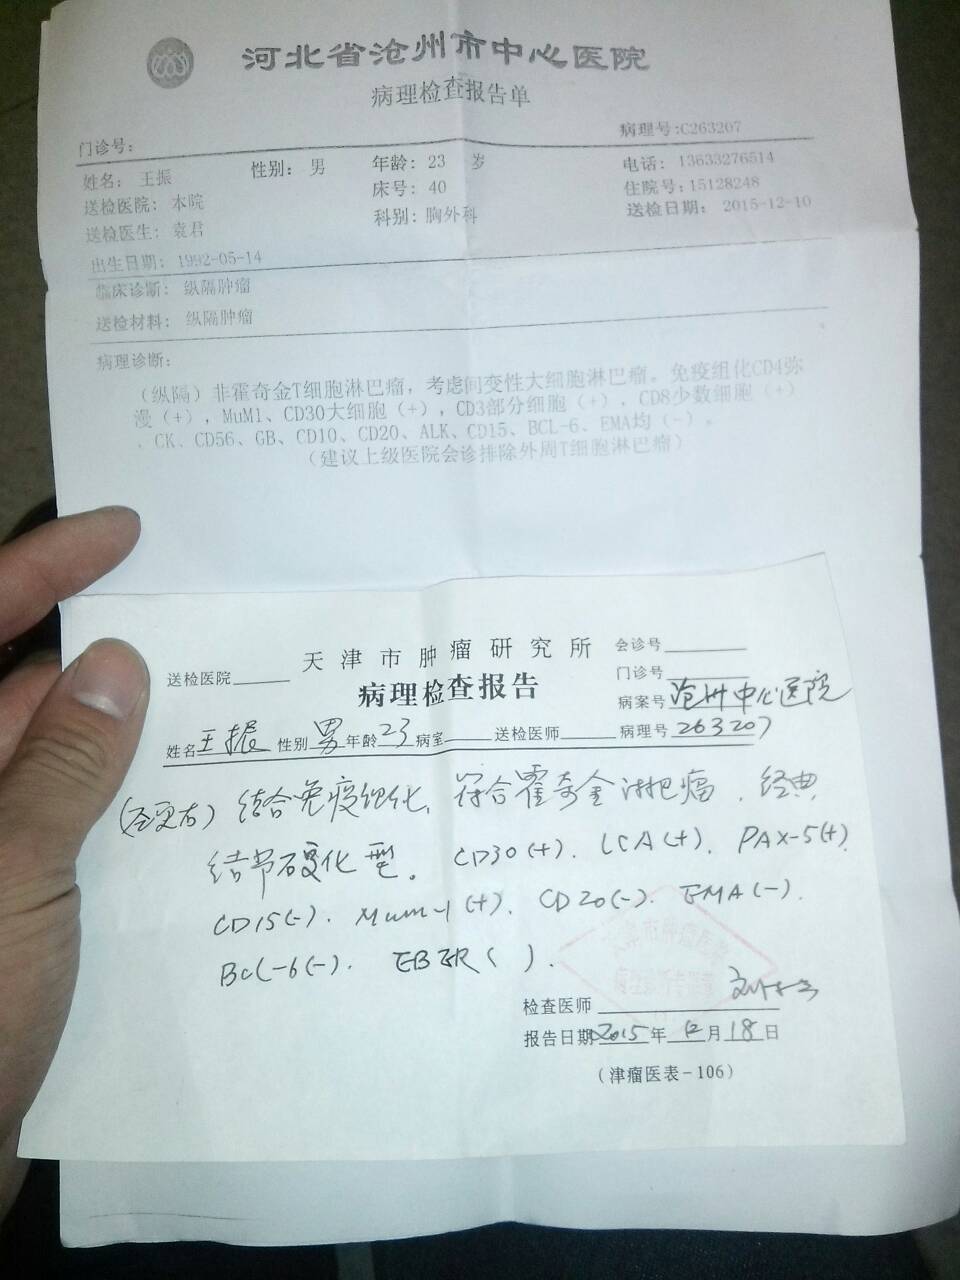 河北省沧州市中心医院
病理检查报告单
门诊号: 病理号:C263207
姓名: 王振 性别: 男 年龄: 23 岁 电话: 13633276514
送检医院: 本院 床号: 40 住院号:15128248
送检医生: 袁君 科别: 胸外科 送检日期: 2015-12-10
出生日期: 1992-05-14
临床诊断: 纵隔肿瘤
送检材料: 纵隔肿瘤
病理诊断:
（纵隔）非霍奇金T细胞淋巴瘤，考虑间变性大细胞淋巴瘤。免疫组化CD4弥
漫（+），MuM1、CD30大细胞（+），CD3部分细胞（+），CD8少数细胞（+）
、CK、CD56、GB、CD10、CD20、ALK、CD15、BCL-6、EMA均（-）。
（建议上级医院会诊排除外周T细胞淋巴瘤）
天津市肿瘤研究所 会诊号
送检医院 病理检查报告 门诊号
病案号 沧州中心医院
姓名 王振 性别 男 年龄 23 病室 送检医师 病理号 263207
结合免疫组化、符合霍奇金淋巴瘤、经典
结节硬化型。CD30(+). LCA(+). PAX-5(+)
CD15(-). Mum-1(+). CD20(-). EMA(-).
Bcl-6(-). EBER( ).
检查医师
报告日期 2015年12月18日
(津瘤医表-106)